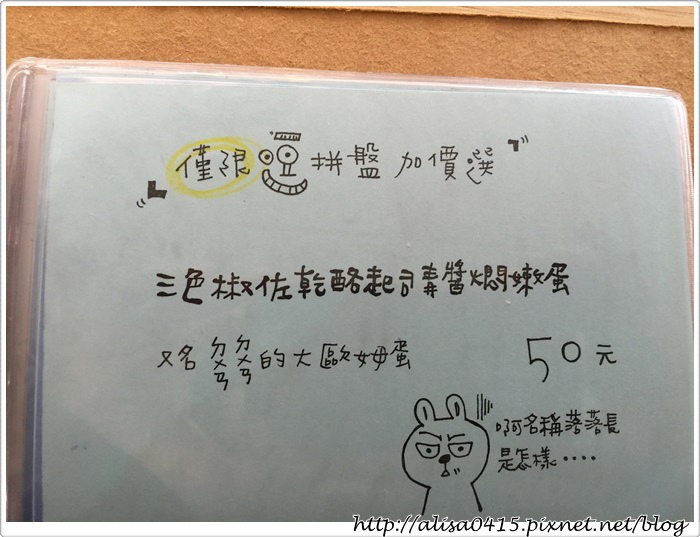 僅限 拼盤 加價選
三色椒佐乾酪起司毒醬燜嫩蛋
又名ㄉㄨㄢㄉㄨㄢ的大歐姆蛋 50元
啊名稱落落長
是怎樣....
http://alisa0415.pixnet.net/blog